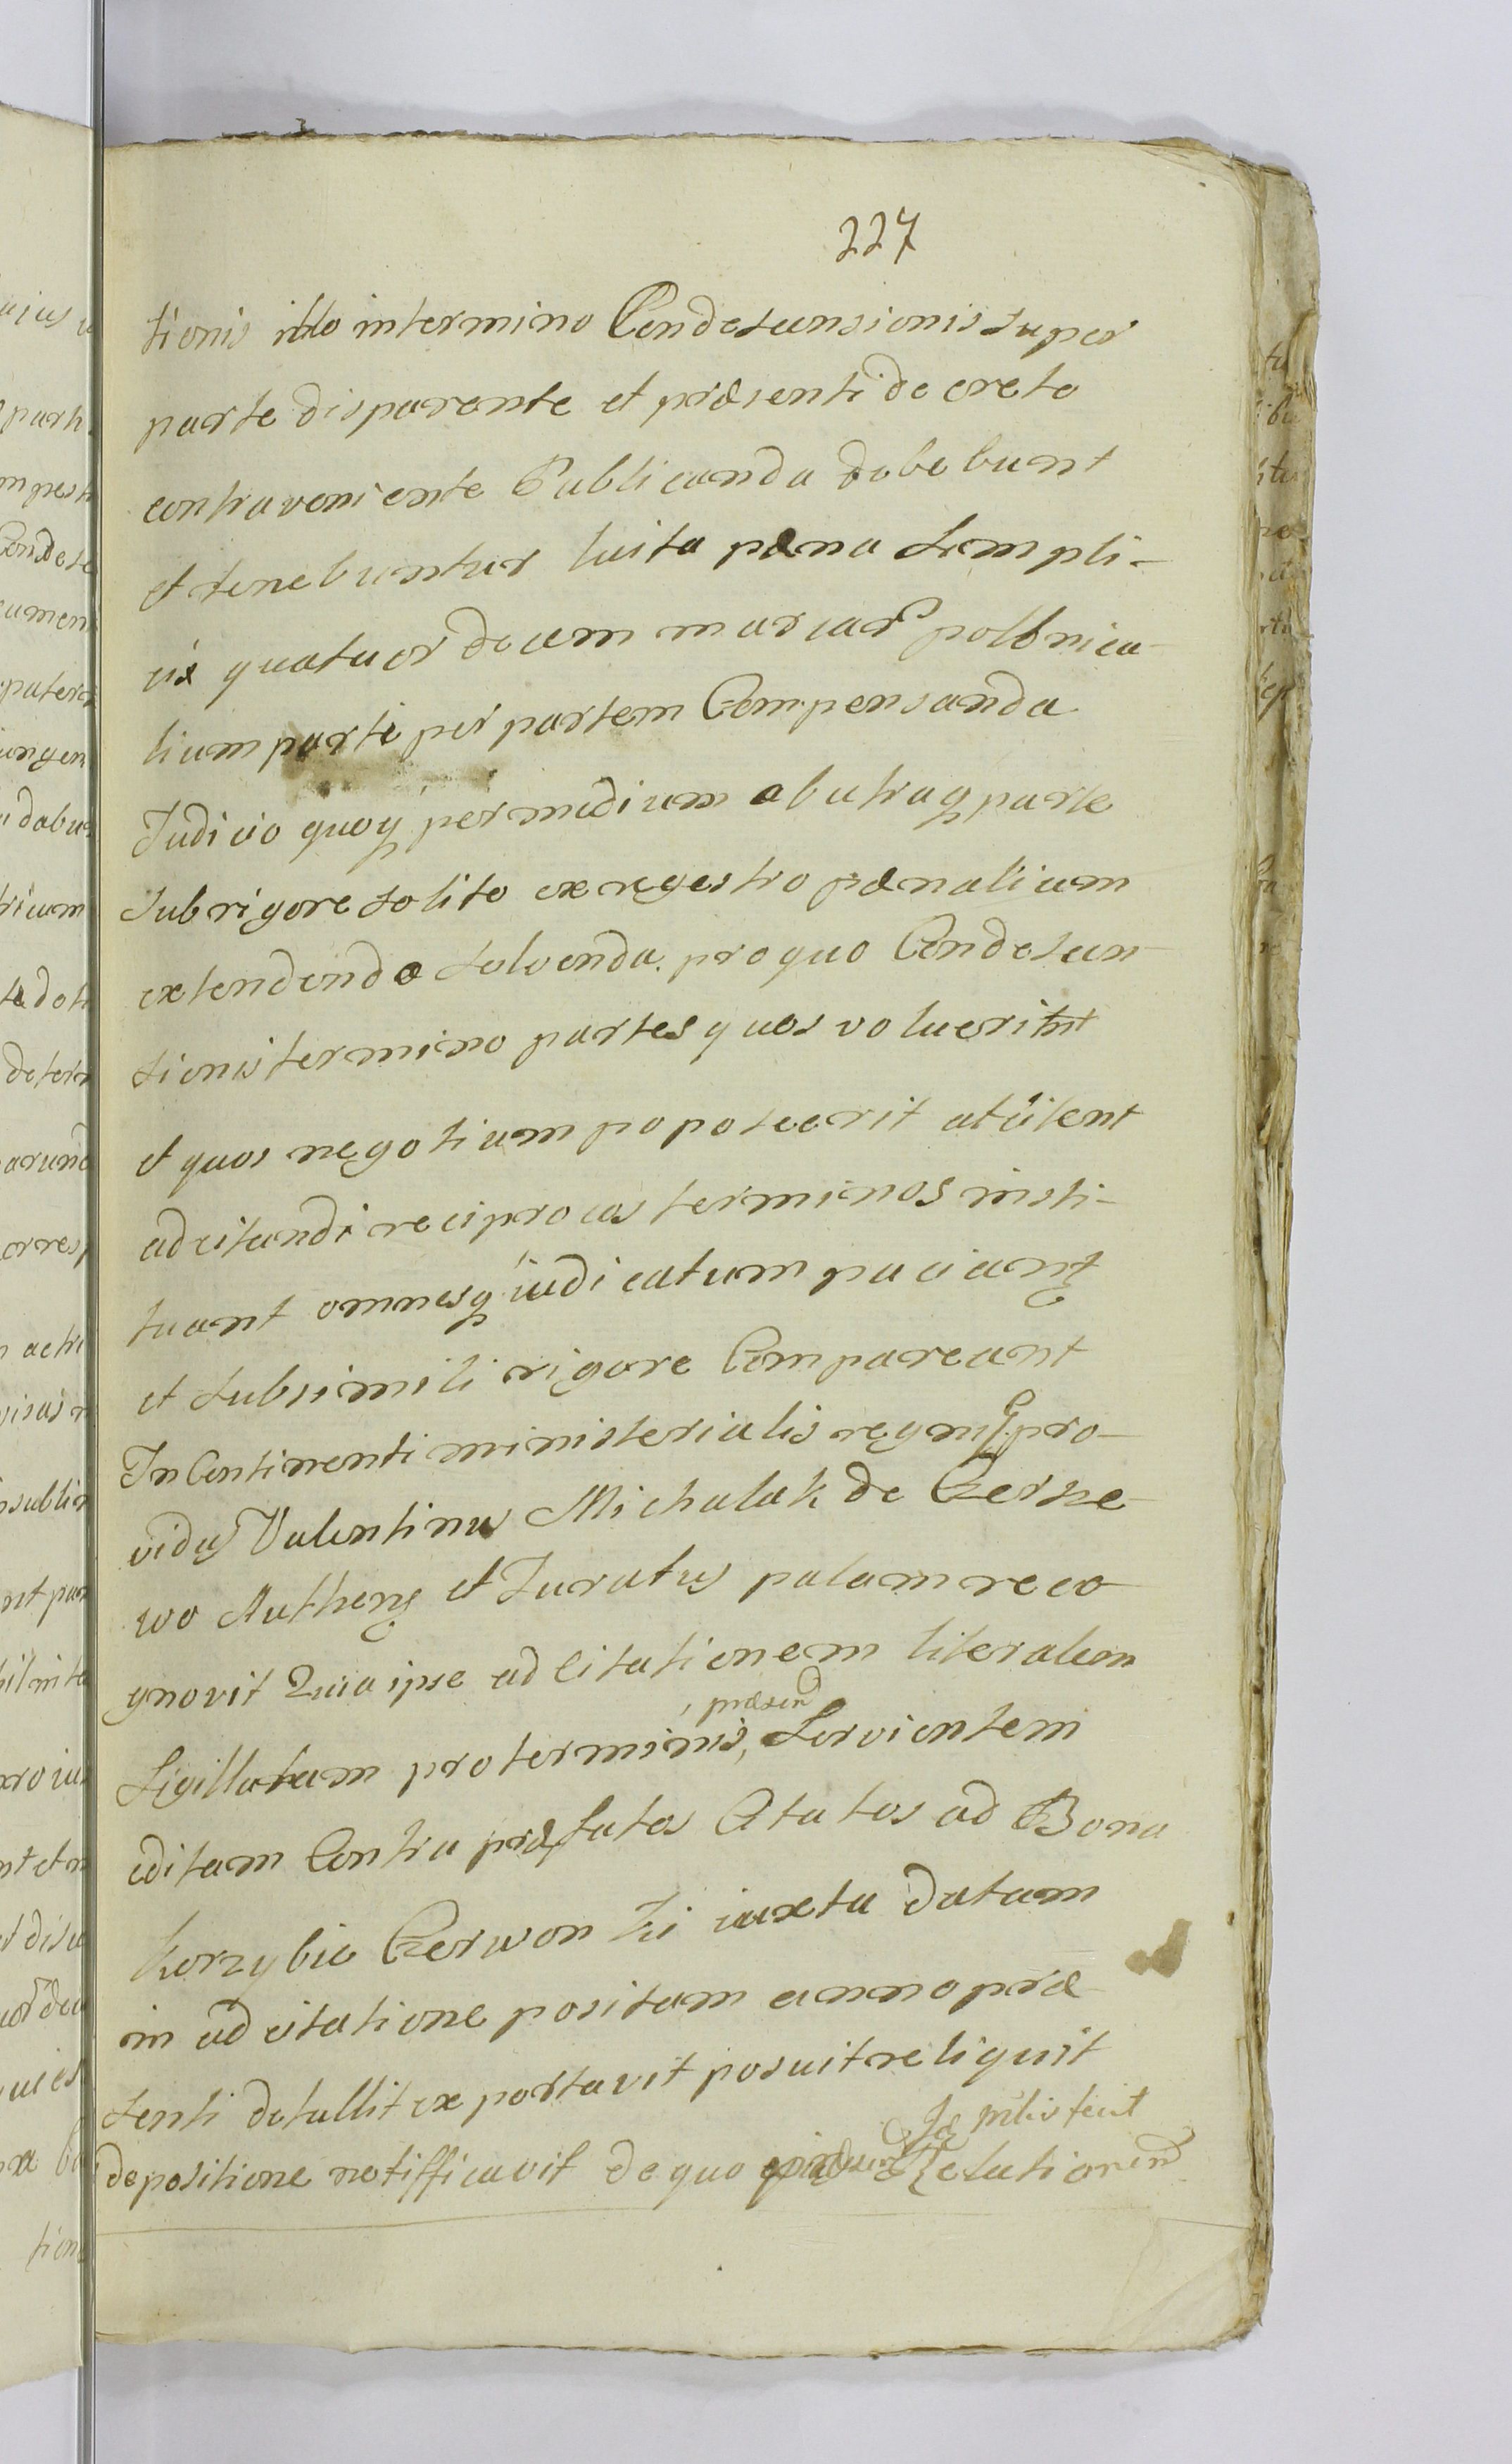 227
tionis illo in termino Condescensionis super
parte disparente et præsenti decreto
contraveniente Publicanda debebunt
et tenebuntur luita pæna Sempli-
cis quatuordecem marcar polonica-
lium parti per partem Compensanda
Judicio quoq per medium ab utraq parte
sub rigore solito ex regestro pænalium
extendendo solvenda. pro quo Condescen-
sionis termino partes quos voluerint
et quos negotium poposcerit
adcitandi reciprocos terminos insti-
tuant omnesq iudicatum paciant
et sub simili rigore Compareant
In Continenti ministerialis regni G. pro-
vidus Valentinus Michalak de Czerne-
wo Authens et Juratus palam reco-
gnovit Quia ipse ad Citationem literalem
Sigillatam pro terminis, præsen Servientem
editam Contra præfatos Ctatos ad Bona
Korzybie Czerwonki iuxta datam
in adcitatione positam anno præ-
senti detullit exportavit posuit reliquit
depositione notifficavit de quo Relationem
fecit